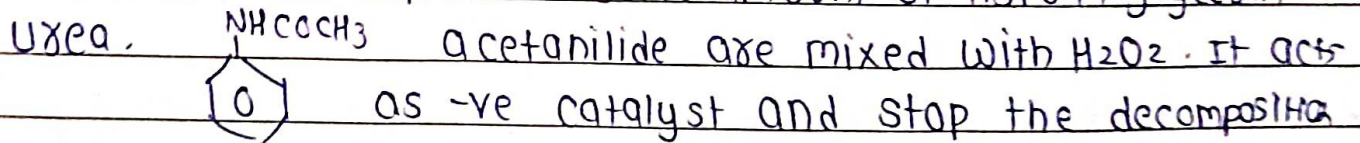 urea. NHCOCH3 acetanilide are mixed with H2O2. It acts
as -ve catalyst and stop the